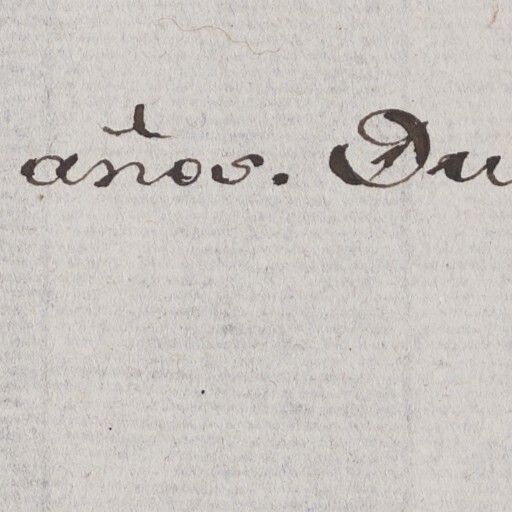 años. Du